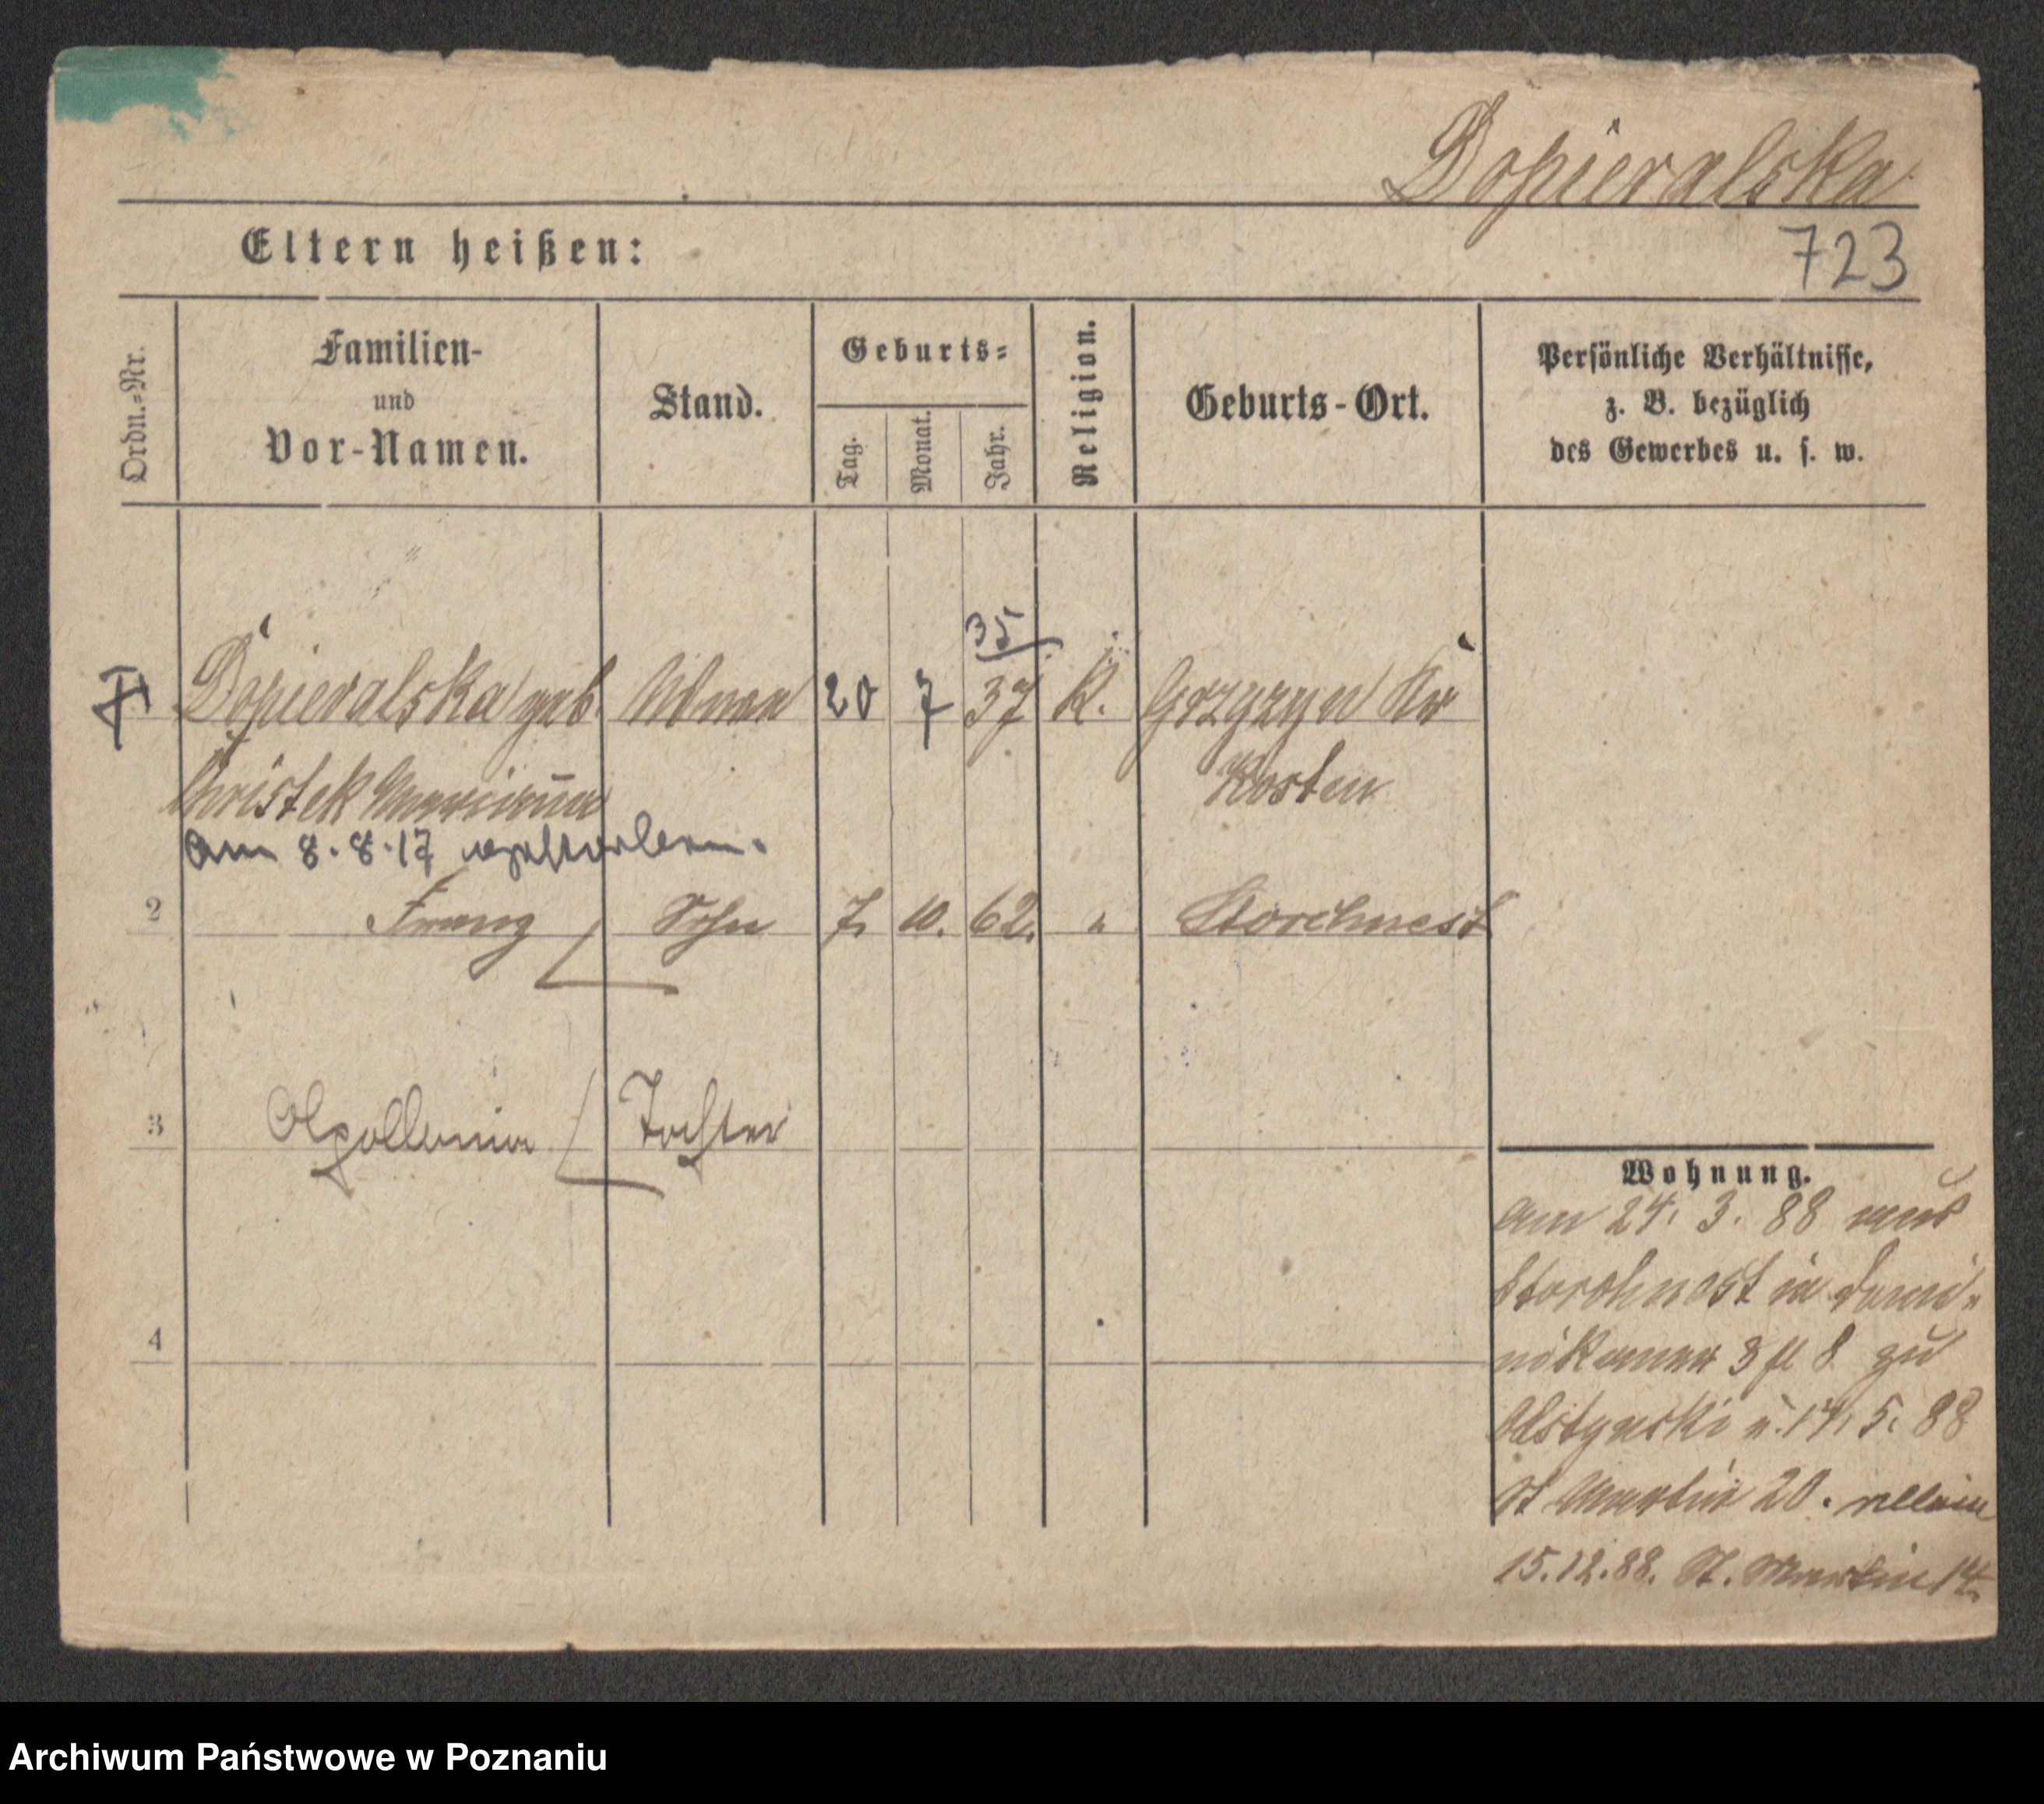 Dopieralska
Eltern heißen:
723
Ordn.-Nr.
Familien-
und
Vor-Namen.
Stand.
Geburts-
Tag.
Monat.
Jahr.
Religion.
Geburts-Ort.
Persönliche Verhältnisse,
z. B. bezüglich
des Gewerbes u. s. w.
35
Dopieralska geb. Wwe 20 7 37 K. Kr
Christek Marianna Kosten
am 8.8.17 verstorben.
2 Franz Sohn 7. 10. 62. " Storchnest
3 Apollonia Tochter
Wohnung.
am 24. 3. 88 aus
Storchnest in Domi-
nikaner 3 8 zu
u. 14. 5. 88
St Martin 20.
15.12.88. St. Martin 14.
4
Archiwum Państwowe w Poznaniu